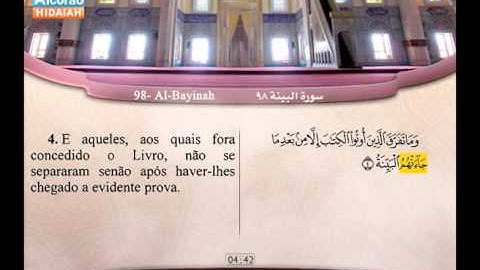 Alcorão
HIDAIAH
98- Al-Bayinah
سورة البينة ٩٨
4. E aqueles, aos quais fora
concedido o Livro, não se
separaram senão após haver-lhes
chegado a evidente prova.
وَمَا تَفَرَّقَ الَّذِينَ أُوتُوا الْكِتَٰبَ إِلَّا مِنْ بَعْدِ مَا
جَاءَتْهُمُ الْبَيِّنَةُ ٤
04:42